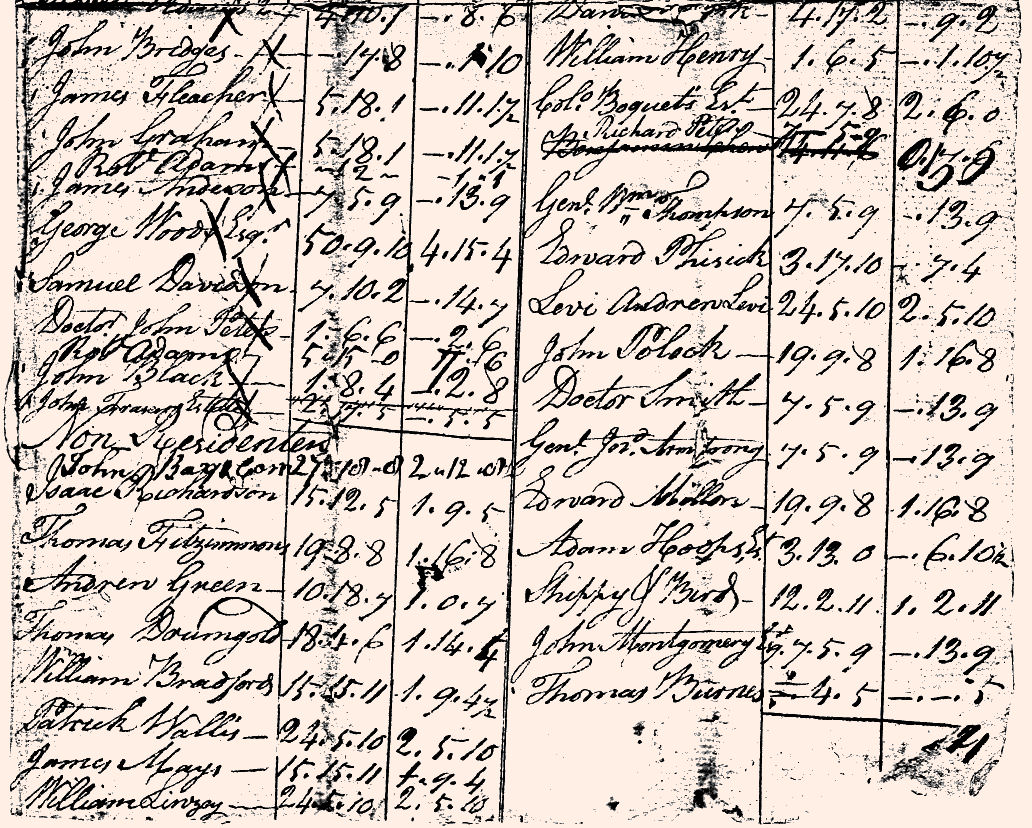 4.10.7 -.8.6
John Bridges - 17.8 -.1.10
James Fleacher 5.18.1 -.11.1½
John Graham 5.18.1 -.11.1½
Robt Adams -12-
James Anderson 7.5.9 -.13.9
George Woods Esqr 50.9.10 4.15.4
Samuel Davidson 7.10.2 -.14.7
Doctor John Peters 1.6.6 -.2.6
Robt Adams 5.15.0
John Black 1.8.4 -.2.8
John Frasers Estate -.5.5
Non Residenters
John 2.12.
Isaac Richardson 15.12.5 1.9.5
Thomas Fitzimmons 19.8.8 1.16.8
Andrew Green 10.18.7 1.0.7
Thomas Doumgold 18.4.6 1.14.4
William Bradford 15.15.11 1.9.4½
Patrick Wallis 24.5.10 2.5.10
James Mays 15.15.11 1.9.4
William Linzey 24.5.10 2.5.10
4.17.2 -.9.2
William Henry 1.6.5 -.1.10½
Colo. Boquets Est. 24.7.8 2.6.0
Richard Peters
Genl. Wm Thompson 7.5.9 -.13.9
Edward Phisick 3.17.10 -.7.4
Levi Andrew Levi 24.5.10 2.5.10
John Polock 19.9.8 1.16.8
Doctor Smith 7.5.9 -.13.9
Genl. Jno. Armstrong 7.5.9 -.13.9
Edward Millon 19.9.8 1.16.8
Adam Hoops 3.13.0 -.6.10½
Shippy & Bird 12.2.11 1.2.11
John Montgomery 7.5.9 -.13.9
Thomas Burnes 4.5 -.-.5